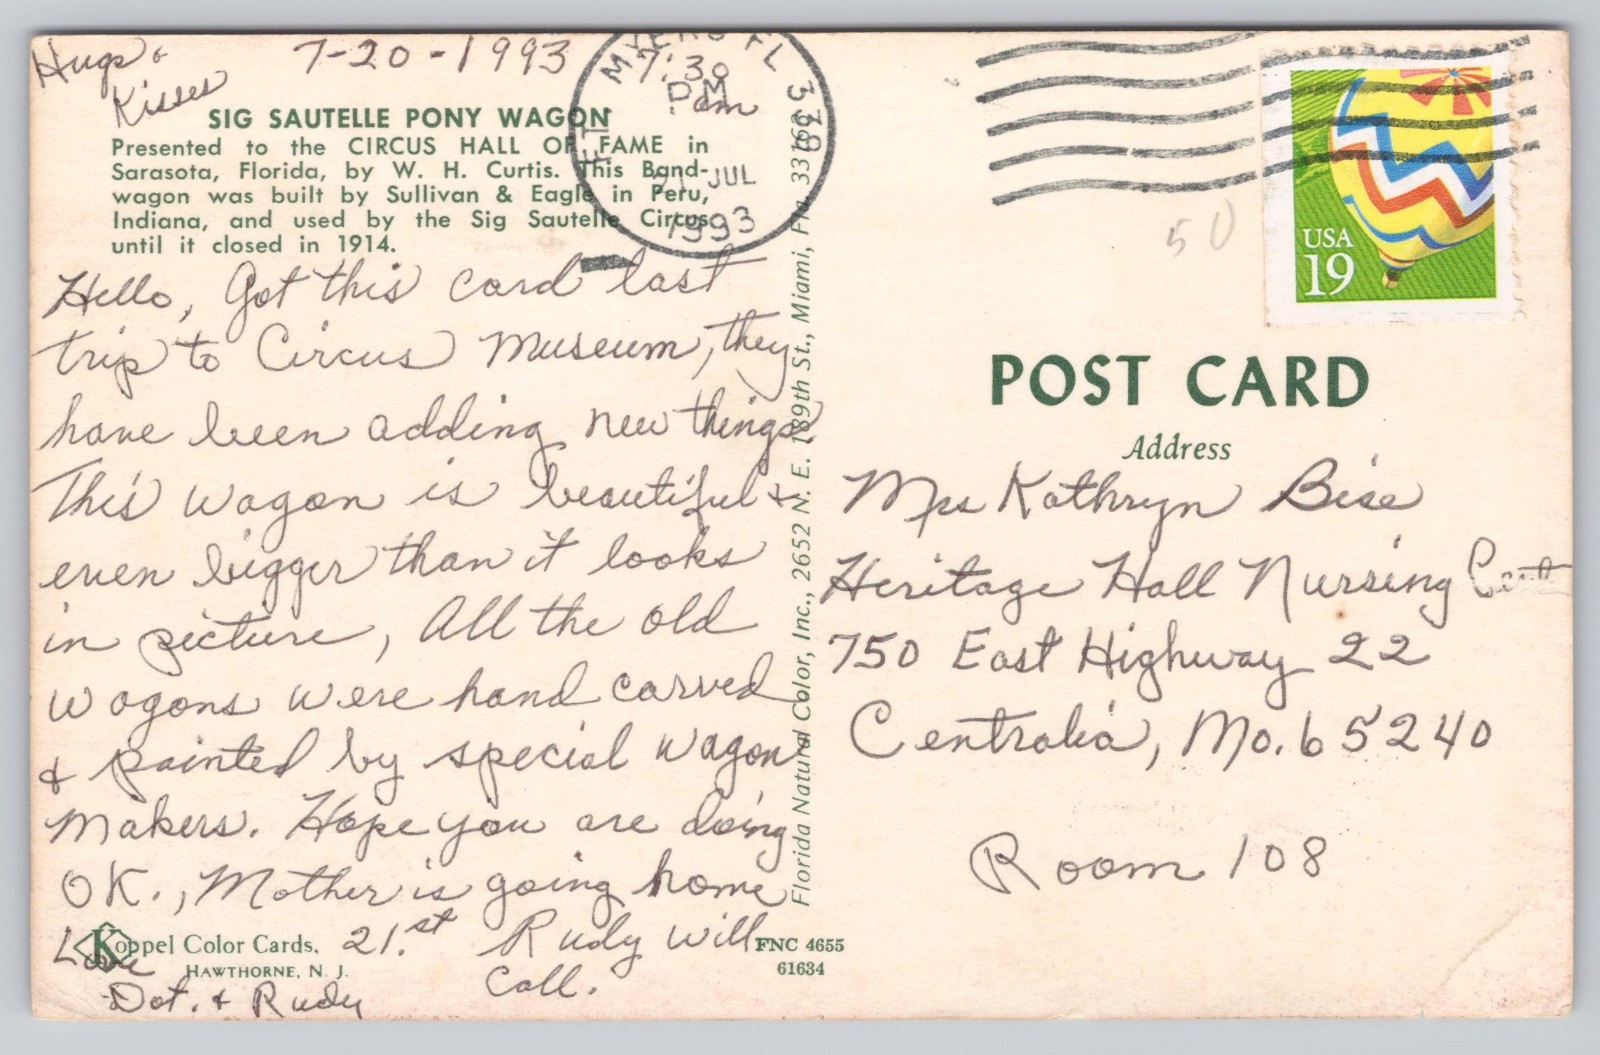 Hugs &
Kisses
7-20-1993
7:30
am
SIG SAUTELLE PONY WAGON
Presented to the CIRCUS HALL OF FAME in
Sarasota, Florida, by W. H. Curtis. This Band-
wagon was built by Sullivan & Eagle in Peru,
Indiana, and used by the Sig Sautelle Circus
until it closed in 1914.
FT MYERS FL 339
PM
21 JUL
1993
Hello, Got this card last
trip to Circus Museum, they
have been adding new things
This wagon is beautiful &
even bigger than it looks
in picture, All the old
wagons were hand carved
& painted by special wagon
makers. Hope you are doing
OK., Mother is going home
21.st Rudy will
Call.
Love
Dot. & Rudy
Koppel Color Cards.
HAWTHORNE, N. J.
FNC 4655
61634
Florida Natural Color, Inc., 2652 N. E. 189th St., Miami, Fla. 33160
50
USA
19
POST CARD
Address
Mrs Kathryn Bise
Heritage Hall Nursing Cent
750 East Highway 22
Centralia, Mo. 65240
Room 108